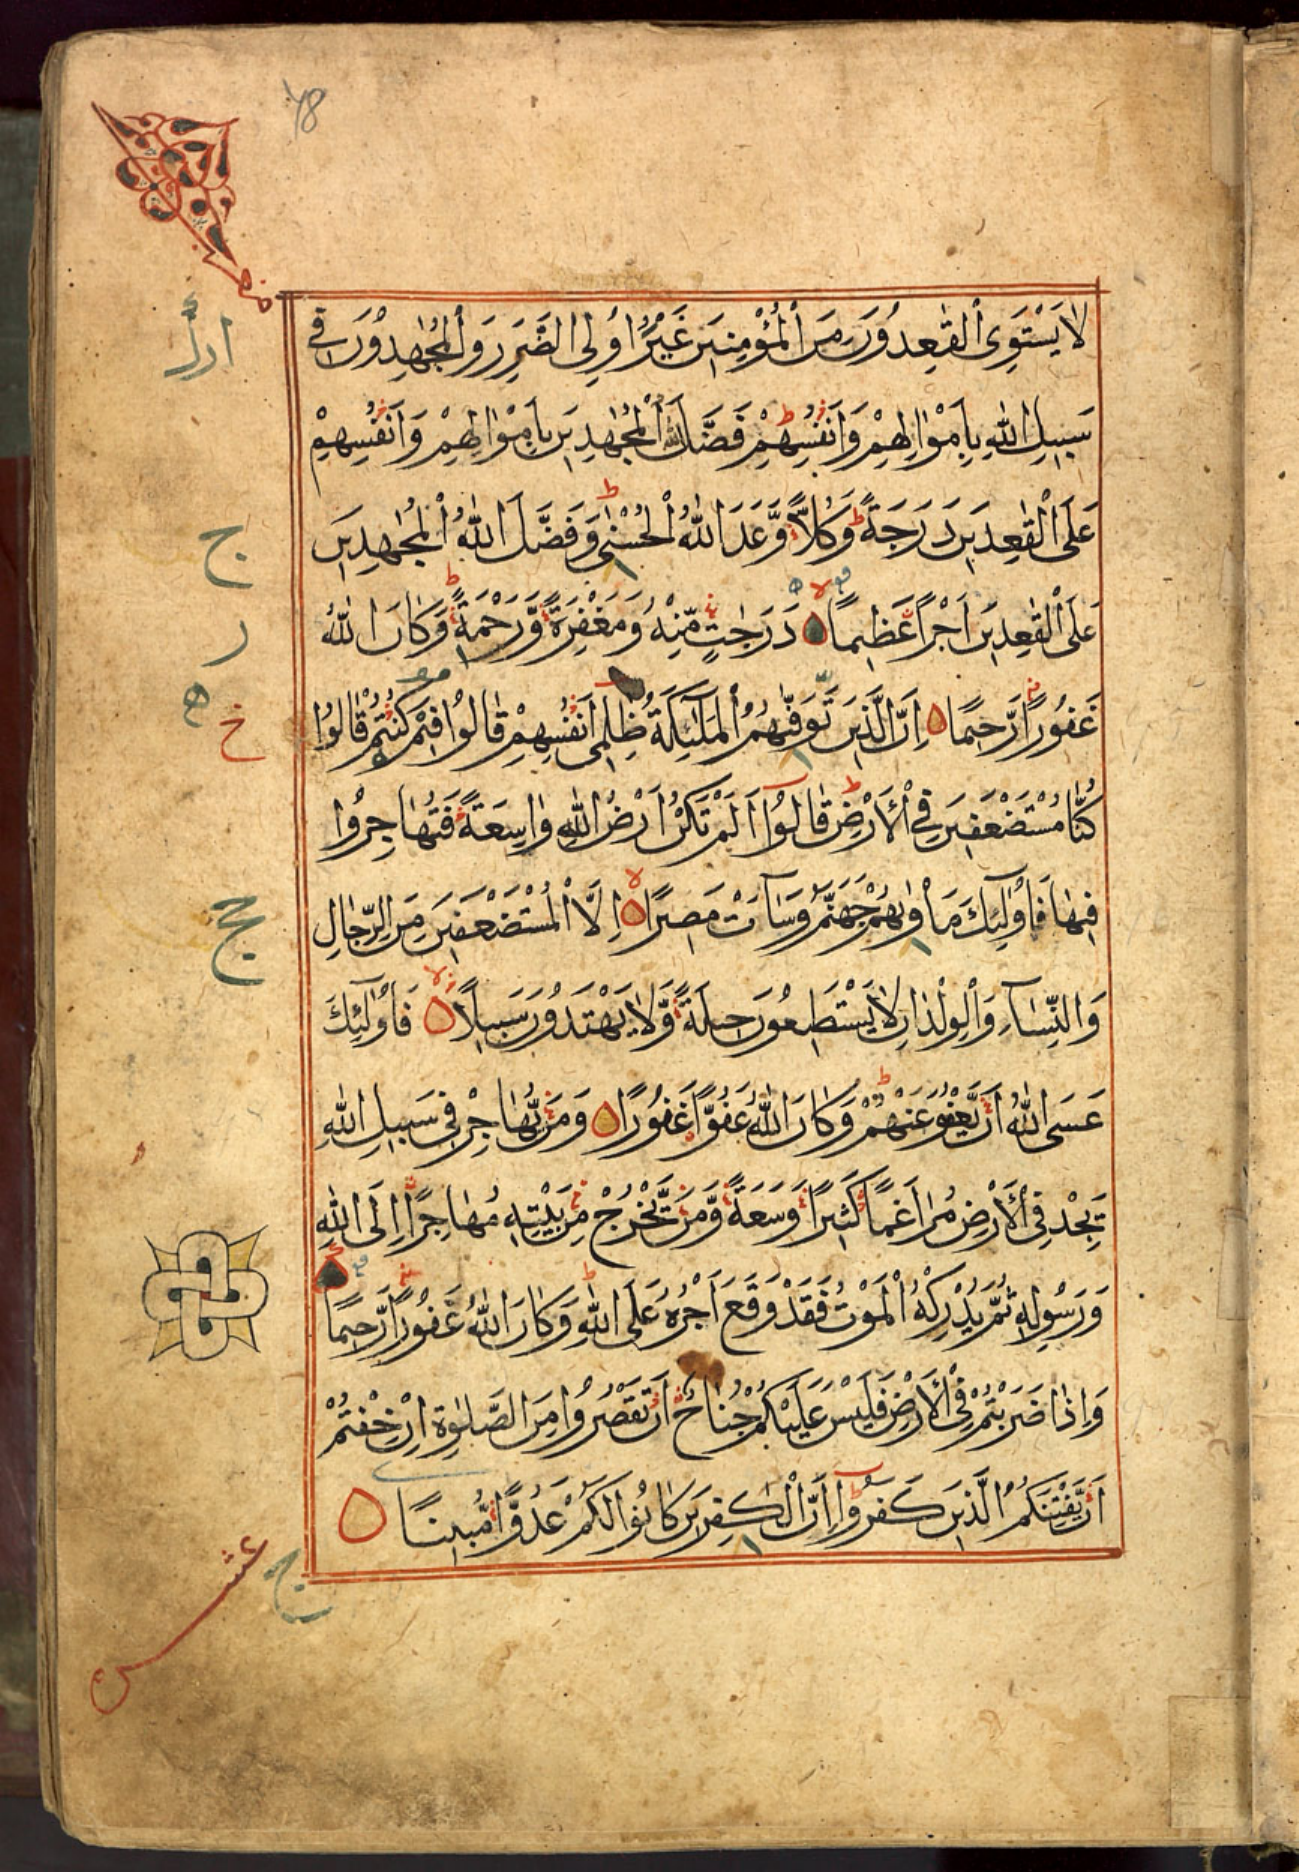 ٧٨
لَا يَسْتَوِى الْقٰعِدُوْنَ مِنَ الْمُؤْمِنِيْنَ غَيْرُ اُولِى الضَّرَرِ وَالْمُجٰهِدُوْنَ فِى
سَبِيْلِ اللهِ بِاَمْوٰالِهِمْ وَاَنْفُسِهِمْ فَضَّلَ اللهُ الْمُجٰهِدِيْنَ بِاَمْوٰالِهِمْ وَاَنْفُسِهِمْ
عَلَى الْقٰعِدِيْنَ دَرَجَةً وَكُلاًّ وَّعَدَ اللهُ الْحُسْنٰى وَفَضَّلَ اللهُ الْمُجٰهِدِيْنَ
عَلَى الْقٰعِدِيْنَ اَجْرًا عَظِيْمًا دَرَجٰتٍ مِّنْهُ وَمَغْفِرَةً وَّرَحْمَةً وَكَانَ اللهُ
غَفُوْرًا رَّحِيْمًا اِنَّ الَّذِيْنَ تَوَفّٰهُمُ الْمَلٰٓئِكَةُ ظٰلِمِى اَنْفُسِهِمْ قٰالُوْا فِيْمَ كُنْتُمْ قٰالُوْا
كُنَّا مُسْتَضْعَفِيْنَ فِى الْاَرْضِ قٰالُوْٓا اَلَمْ تَكُنْ اَرْضُ اللهِ وٰاسِعَةً فَتُهٰاجِرُوْا
فِيْهٰا فَاُولٰٓئِكَ مَأْوٰىهُمْ جَهَنَّمُ وَسَآءَتْ مَصِيْرًا اِلَّا الْمُسْتَضْعَفِيْنَ مِنَ الرِّجٰالِ
وَالنِّسَآءِ وَالْوِلْدٰانِ لَا يَسْتَطِيْعُوْنَ حِيْلَةً وَّلَا يَهْتَدُوْنَ سَبِيْلًا فَاُولٰٓئِكَ
عَسَى اللهُ اَنْ يَّعْفُوَ عَنْهُمْ وَكَانَ اللهُ عَفُوًّا غَفُوْرًا وَمَنْ يُّهٰاجِرْ فِى سَبِيْلِ اللهِ
يَجِدْ فِى الْاَرْضِ مُرٰاغَمًا كَثِيْرًا وَسَعَةً وَّمَنْ يَّخْرُجْ مِنْ بَيْتِهٖ مُهٰاجِرًا اِلَى اللهِ
وَرَسُوْلِهٖ ثُمَّ يُدْرِكْهُ الْمَوْتُ فَقَدْ وَقَعَ اَجْرُهُ عَلَى اللهِ وَكٰانَ اللهُ غَفُوْرًا رَّحِيْمًا
وَاِذٰا ضَرَبْتُمْ فِى الْاَرْضِ فَلَيْسَ عَلَيْكُمْ جُنٰاحٌ اَنْ تَقْصُرُوْا مِنَ الصَّلٰوةِ اِنْ خِفْتُمْ
اَنْ يَّفْتِنَكُمُ الَّذِيْنَ كَفَرُوْٓا اِنَّ الْكٰفِرِيْنَ كٰانُوْا لَكُمْ عَدُوًّا مُّبِيْنًا
عشر